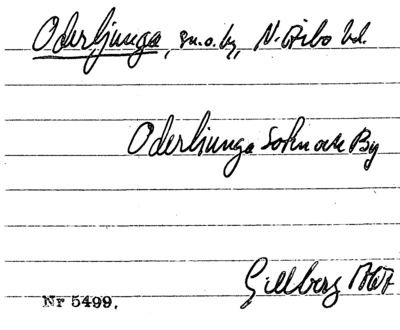 Oderljunga, sn.o.by, N. Åsbo hd.
Oderliunga Soknoch By
Gillberg 
Nr 5499.